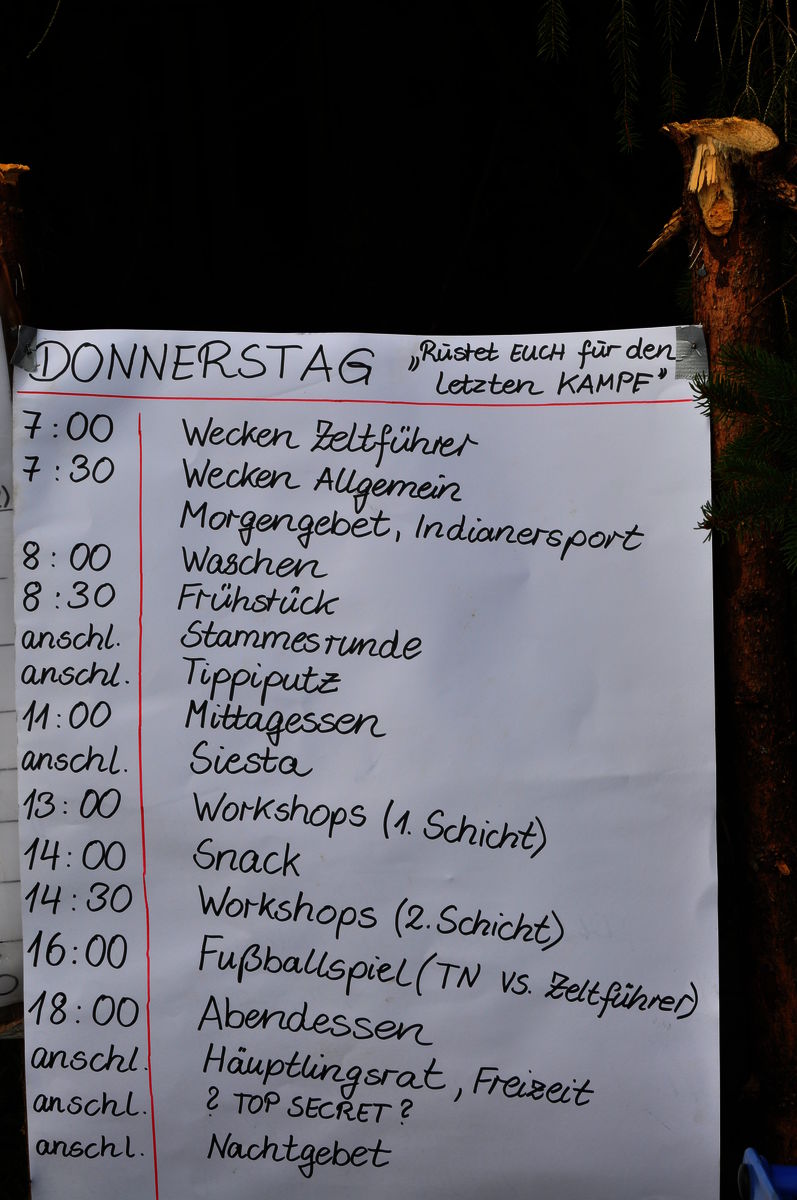 DONNERSTAG „Rüstet EUCH für den
letzten KAMPF"
7:00 Wecken Zeltführer
7:30 Wecken Allgemein
Morgengebet, Indianersport
8:00 Waschen
8:30 Frühstück
anschl. Stammesrunde
anschl. Tippiputz
11:00 Mittagessen
anschl. Siesta
13:00 Workshops (1. Schicht)
14:00 Snack
14:30 Workshops (2. Schicht)
16:00 Fußballspiel (TN vs. Zeltführer)
18:00 Abendessen
anschl. Häuptlingsrat, Freizeit
anschl. ? TOP SECRET ?
anschl. Nachtgebet